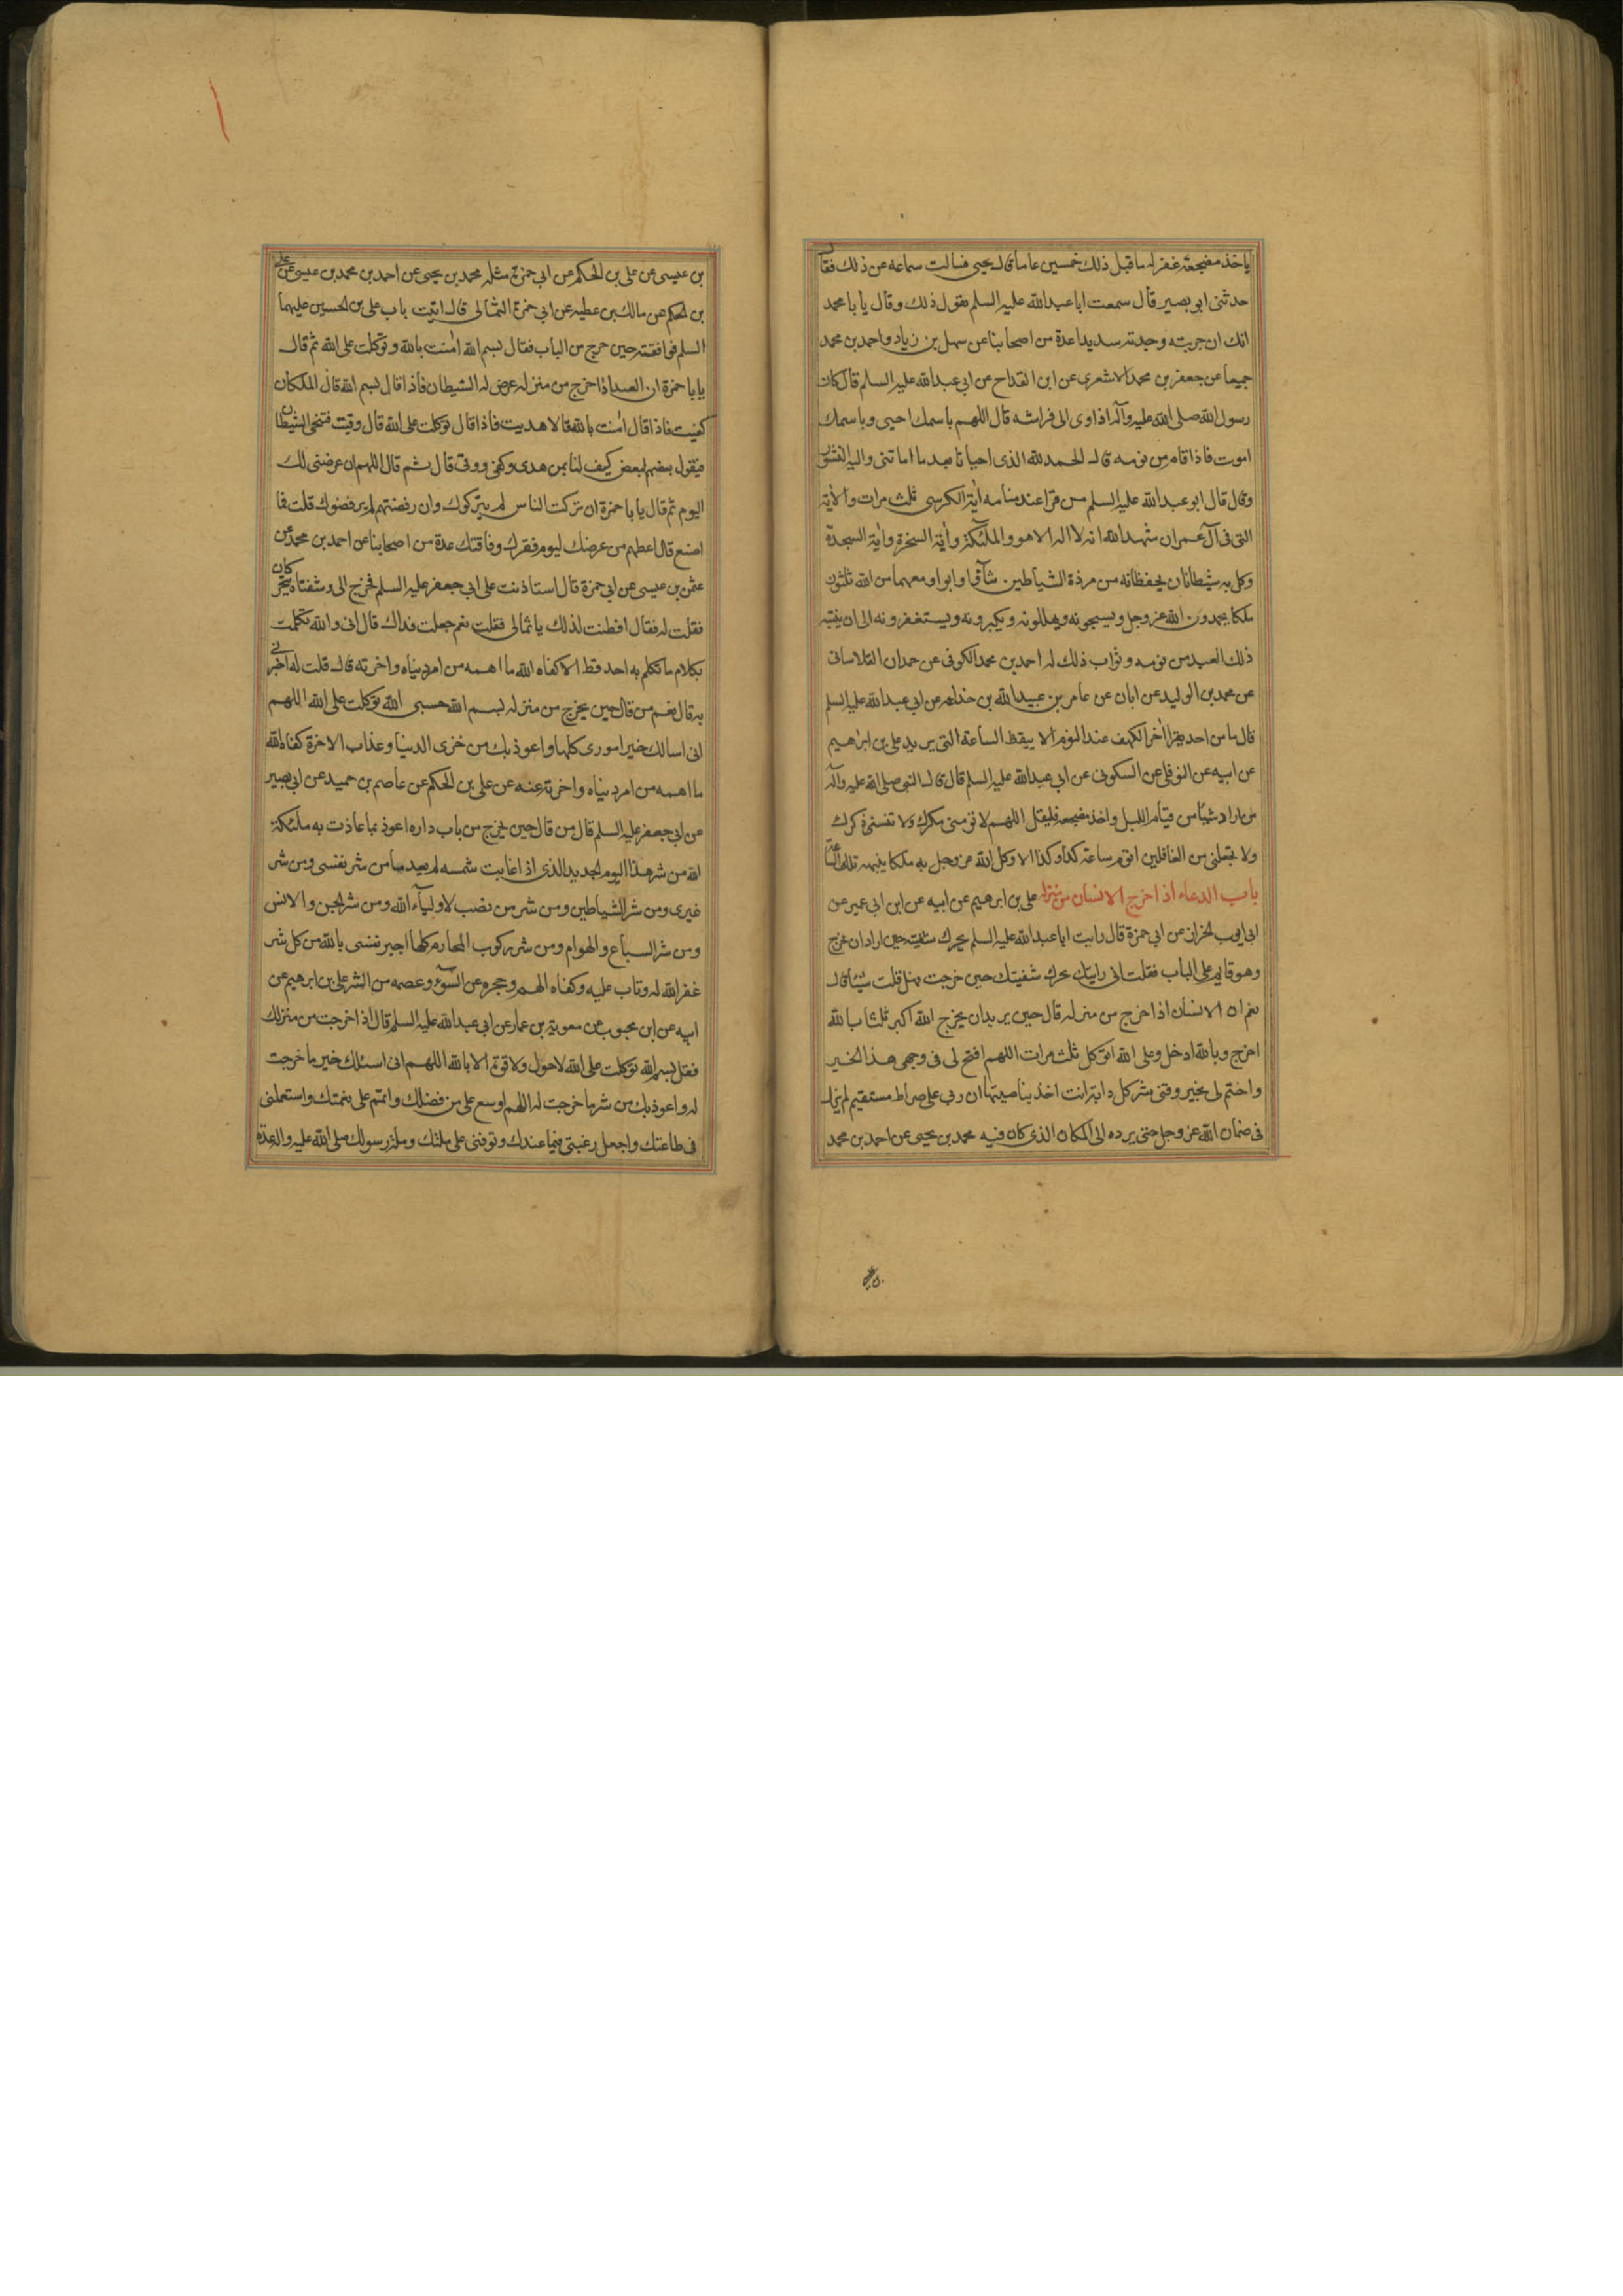 ياخذ مضجعه غفر له ما قبل ذلك خمسين عاما قال يحيى فسالت سماعه عن ذلك فقال
حدثنى ابو بصير قال سمعت ابا عبد الله عليه السلم يقول ذلك وقال يا با محمد
انك ان جربته وجدته سديدا عدة من اصحابنا عن سهل بن زياد واحمد بن محمد
جميعا عن جعفر بن محمد الاشعرى عن ابن القداح عن ابى عبد الله عليه السلم قال كان
رسول الله صلى الله عليه وآله اذا اوى الى فراشه قال اللهم باسمك احيى وباسمك
اموت فاذا قام من نومه قال الحمد لله الذى احيانا بعد ما اماتنى واليه النشور
وقال قال ابو عبد الله عليه السلم من قرا عند منامه آية الكرسى ثلث مرات والاية
التى فى آل عمران شهد الله انه لا اله الا هو والملئكة وآية السخرة وآية السجدة
وكل به شيطانان يحفظانه من مردة الشياطين شآؤا وابوا ومعهما من الله ثلثون
ملكا يحمدون الله عز وجل ويسبحونه ويهللونه ويكبرونه ويستغفرونه الى ان ينتبه
ذلك العبد من نومه وثواب ذلك له احمد بن محمد الكوفى عن حمدان القلانسى
عن محمد بن الوليد عن ابان عن عامر بن عبيد الله بن جذاعه عن ابى عبد الله عليه السلم
قال ما من احد يقرا آخر الكهف عند النوم الا ييقظ الساعة التى يريد على بن ابراهيم
عن ابيه عن النوفلى عن السكونى عن ابى عبد الله عليه السلم قال قال النبى صلى الله عليه وآله
من اراد شيئا من قيام الليل واخذ مضجعه فليقل اللهم لا تؤمنى مكرك ولا تنسنى ذكرك
ولا تجعلنى من الغافلين اقوم ساعة كذا وكذا الا وكل الله عز وجل به ملكا ينبهه تلك الساعة
باب الدعاء اذا خرج الانسان من منزله على بن ابرهيم عن ابيه عن ابن ابى عمير عن
ابى ايوب الخزاز عن ابى حمزة قال رايت ابا عبد الله عليه السلم يحرك شفتيه حين اراد ان يخرج
وهو قايم على الباب فقلت انى رايتك تحرك شفتيك حين خرجت فهل قلت شيئا قال
نعم ان الانسان اذا خرج من منزله قال حين يريد ان يخرج الله اكبر ثلثا بالله
اخرج وبالله ادخل وعلى الله اتوكل ثلث مرات اللهم افتح لى فى وجهى هذا بخير
واختم لى بخير وقنى شر كل دابة انت اخذ بناصيتها ان ربى على صراط مستقيم لم يزل
فى ضمان الله عز وجل حتى يرده الى المكان الذى كان فيه محمد بن يحيى عن احمد بن محمد
بن عيسى عن على بن الحكم عن ابى حمزة مثله محمد بن يحيى عن احمد بن محمد بن عيسى عن على
بن الحكم عن مالك بن عطيه عن ابى حمزة الثمالى قال اتيت باب على بن الحسين عليهما
السلم فوافقته حين خرج من الباب فقال بسم الله امنت بالله وتوكلت على الله ثم قال
يا با حمزة ان العبد اذا خرج من منزله عرض له الشيطان فاذا قال بسم الله قال الملكان
كفيت فاذا قال امنت بالله قالا هديت فاذا قال توكلت على الله قال وقيت فتنحى الشيطان
فيقول بعضهم لبعض كيف لنا بمن هدى وكفى ووقى قال ثم قال اللهم ان عرضى لك
اليوم ثم قال يا با حمزة ان تركت الناس لم يتركوك وان رفضتهم لم يرفضوك قلت فما
اصنع قال اعطهم من عرضك ليوم فقرك وفاقتك عدة من اصحابنا عن احمد بن محمد عن
عثمن بن عيسى عن ابى حمزة قال استاذنت على ابى جعفر عليه السلم فخرج الى وشفتاه يتحركان
فقلت له فقال افطنت لذلك يا ثمالى فقلت نعم جعلت فداك قال انى والله تكلمت
بكلام ما تكلم به احد قط الا كفاه الله ما اهمه من امر دنياه واخرته قال قلت له اخبرنى
به قال نعم من قال حين يخرج من منزله بسم الله حسبى الله توكلت على الله اللهم
انى اسالك خير امورى كلها واعوذ بك من خزى الدنيا وعذاب الاخرة كفاه الله
ما اهمه من امر دنياه واخرته عنه عن على بن الحكم عن عاصم بن حميد عن ابى بصير
عن ابى جعفر عليه السلم قال من قال حين يخرج من باب داره اعوذ بما عاذت به ملئكة
الله من شر هذا اليوم الجديد الذى اذا غابت شمسه لم يعد من شر نفسى ومن شر
غيرى ومن شر الشياطين ومن شر من نصب لاوليآء الله ومن شر الجن والانس
ومن شر السباع والهوام ومن شر ركوب المحارم كلها اجير نفسى بالله من كل شر
غفر الله له وتاب عليه وكفاه الهم وحجزه عن السوء وعصمه من الشر على بن ابرهيم عن
ابيه عن ابن محبوب عن معوية بن عمار عن ابى عبد الله عليه السلم قال اذا خرجت من منزلك
فقل بسم الله توكلت على الله لا حول ولا قوة الا بالله اللهم انى اسئلك خير ما خرجت
له واعوذ بك من شر ما خرجت له اللهم اوسع على من فضلك واتمم على نعمتك واستعملنى
فى طاعتك واجعل رغبتى فيما عندك وتوفنى على ملتك وملة رسولك صلى الله عليه وآله عدة